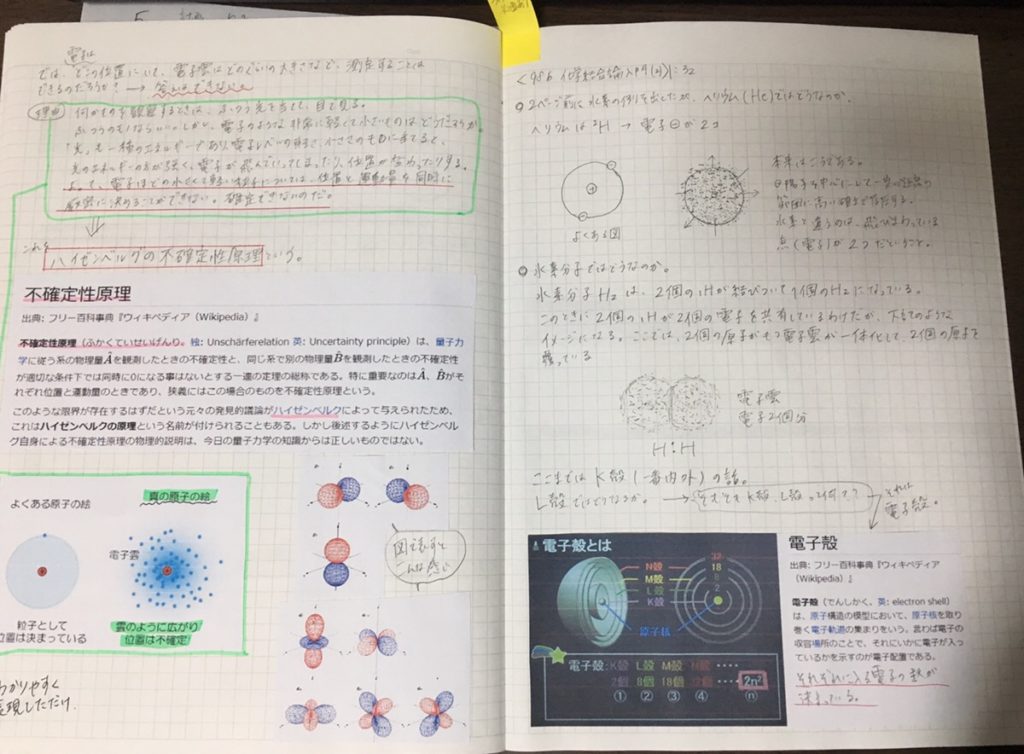 電子は
では、どの位置にいて、電子雲はどのぐらいの大きさで、測定することは
できるのだろうか? → 答えはできない
理由 何かものを観察するときは、ふつう光を当てて、目で見る。
ふつうのものならいい。しかし、電子のような非常に軽くて小さいものはどうだろうか
「光」も一種のエネルギーであり、電子レベルの軽さ、小ささのものに当てると、
光のエネルギーの方が強く、電子が飛んでいってしまったり、位置が変わったりする。
よって、電子ほどの小さくて軽い粒子については、位置と運動量を同時に
厳密に決めることができない。確定できないのだ。
これを
ハイゼンベルグの不確定性原理という。
不確定性原理
出典: フリー百科事典『ウィキペディア（Wikipedia）』
不確定性原理（ふかくていせいげんり、独: Unschärferelation 英: Uncertainty principle）は、量子力
学に従う系の物理量Âを観測したときの不確定性と、同じ系で別の物理量B̂を観測したときの不確定性
が適切な条件下では同時に0になる事はないとする一連の定理の総称である。特に重要なのはÂ、B̂がそ
れぞれ位置と運動量のときであり、狭義にはこの場合のものを不確定性原理という。
このような限界が存在するはずだという元々の発見的議論がハイゼンベルクによって与えられたため、
これはハイゼンベルクの原理という名前が付けられることもある。しかし後述するようにハイゼンベルク
自身による不確定性原理の物理的説明は、今日の量子力学の知識からは正しいものではない。
よくある原子の絵
真の原子の絵
電子雲
粒子として
位置は決まっている
雲のように広がり
位置は不確定
図で表すと
こんな感じ
わかりやすく
表現しただけ
2ページ前に水素の例を出したが、ヘリウム(He)ではどうなのか。
→ 電子⊖が2コ
よくある図
本来はこうである。
⊕陽子を中心にして一定の距離の
範囲に高い確率で存在する。
水素と違うのは、飛びまわっている
点(電子)が2つだということ。
水素分子ではどうなのか。
水素分子H2は、2個の1Hが結びついて1個のH2になっている。
このときに2個の1Hが2個の電子を共有しているわけだが、下のような
イメージになる。ここでは、2個の原子がもつ電子雲が一体化して、2個の原子を
覆っている
電子雲
電子2個分
H:H
ここまではK殻(一番内外)の話。
L殻ではどうなるか。 → そもそもK殻、L殻って何??
それは
電子殻。
電子殻とは
N殻
M殻
L殻
K殻
原子核
32
18
8
2
電子殻: K殻 L殻 M殻 N殻 ‥‥
2個 8個 18個 32個 ‥‥ 2n²
① ② ③ ④ ⓝ
電子殻
出典: フリー百科事典『ウィキペディア
（Wikipedia）』
電子殻（でんしかく、英: electron shell）
は、原子構造の模型において、原子核を取り
巻く電子軌道の集まりをいう。言わば電子の
収容場所のことで、それにいかに電子が入っ
ているかを示すのが電子配置である。
それぞれに入る電子の数が
決まっている。